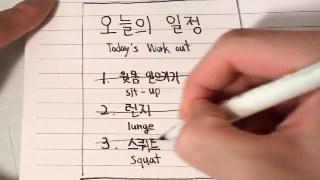 오늘의 일정
Today's Work out
1. 윗몸 일으키기
sit-up
2. 런지
lunge
3. 스쿼트
squat